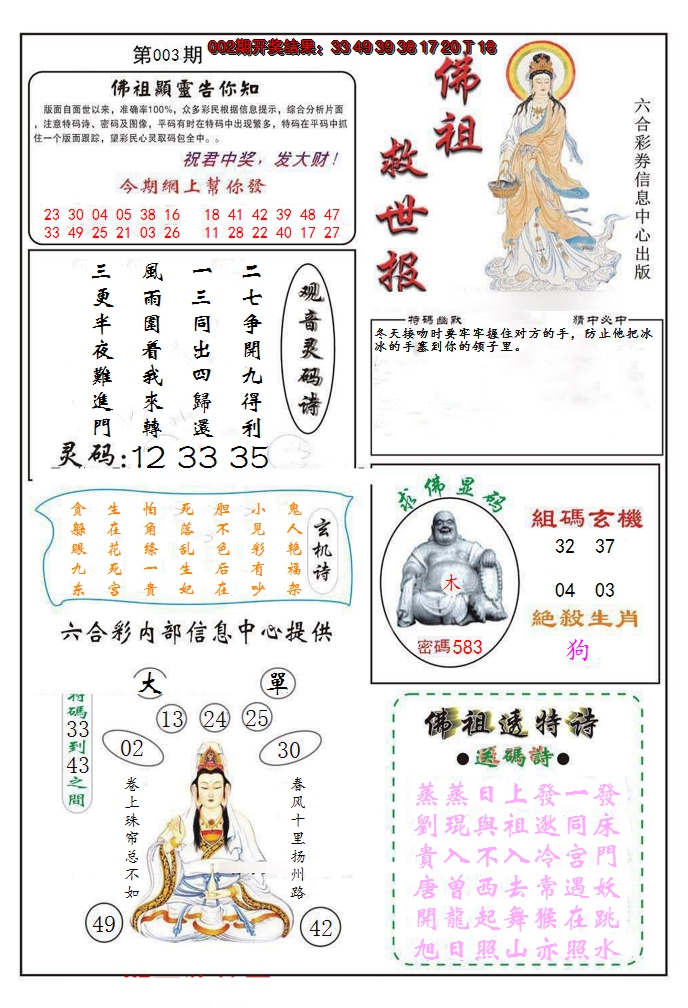 第003期
002期开奖结果：33 49 39 38 17 20 T 18
佛祖顯靈告你知
版面自面世以来，准确率100%，众多彩民根据信息提示，综合分析片面
，注意特码诗、密码及图像，平码有时在特码中出现繁多，特码在平码中抓
住一个版面跟踪，望彩民心灵取码包全中。。
祝君中奖，发大财！
今期網上幫你發
23 30 04 05 38 16 18 41 42 39 48 47
33 49 25 21 03 26 11 28 22 40 17 27
佛祖
救世报
六合彩券信息中心出版
观音灵码诗
二七争開九得利
一三同出四歸還
風雨圍着我來轉
三更半夜難進門
灵码:12 33 35
特碼幽默
猜中必中
冬天接吻时要牢牢握住对方的手，防止他把冰
冰的手塞到你的领子里。
玄机诗
鬼人艳福架
小见彩有吵
胆不色后在
死落乱生妃
怕角绦一贵
生在花死宫
貪躲眼九东
六合彩内部信息中心提供
求佛显码
木
密碼583
組碼玄機
32 37
04 03
絶殺生肖
狗
大
單
13 24 25
02
30
特碼33到43之間
春风十里扬州路
卷上珠帘总不如
49
42
佛祖透特诗
●送碼詩●
蒸蒸日上發一發
劉琨與祖逖同床
貴入不入冷宫門
唐曾西去常遇妖
開龍起舞猴在跳
旭日照山亦照水